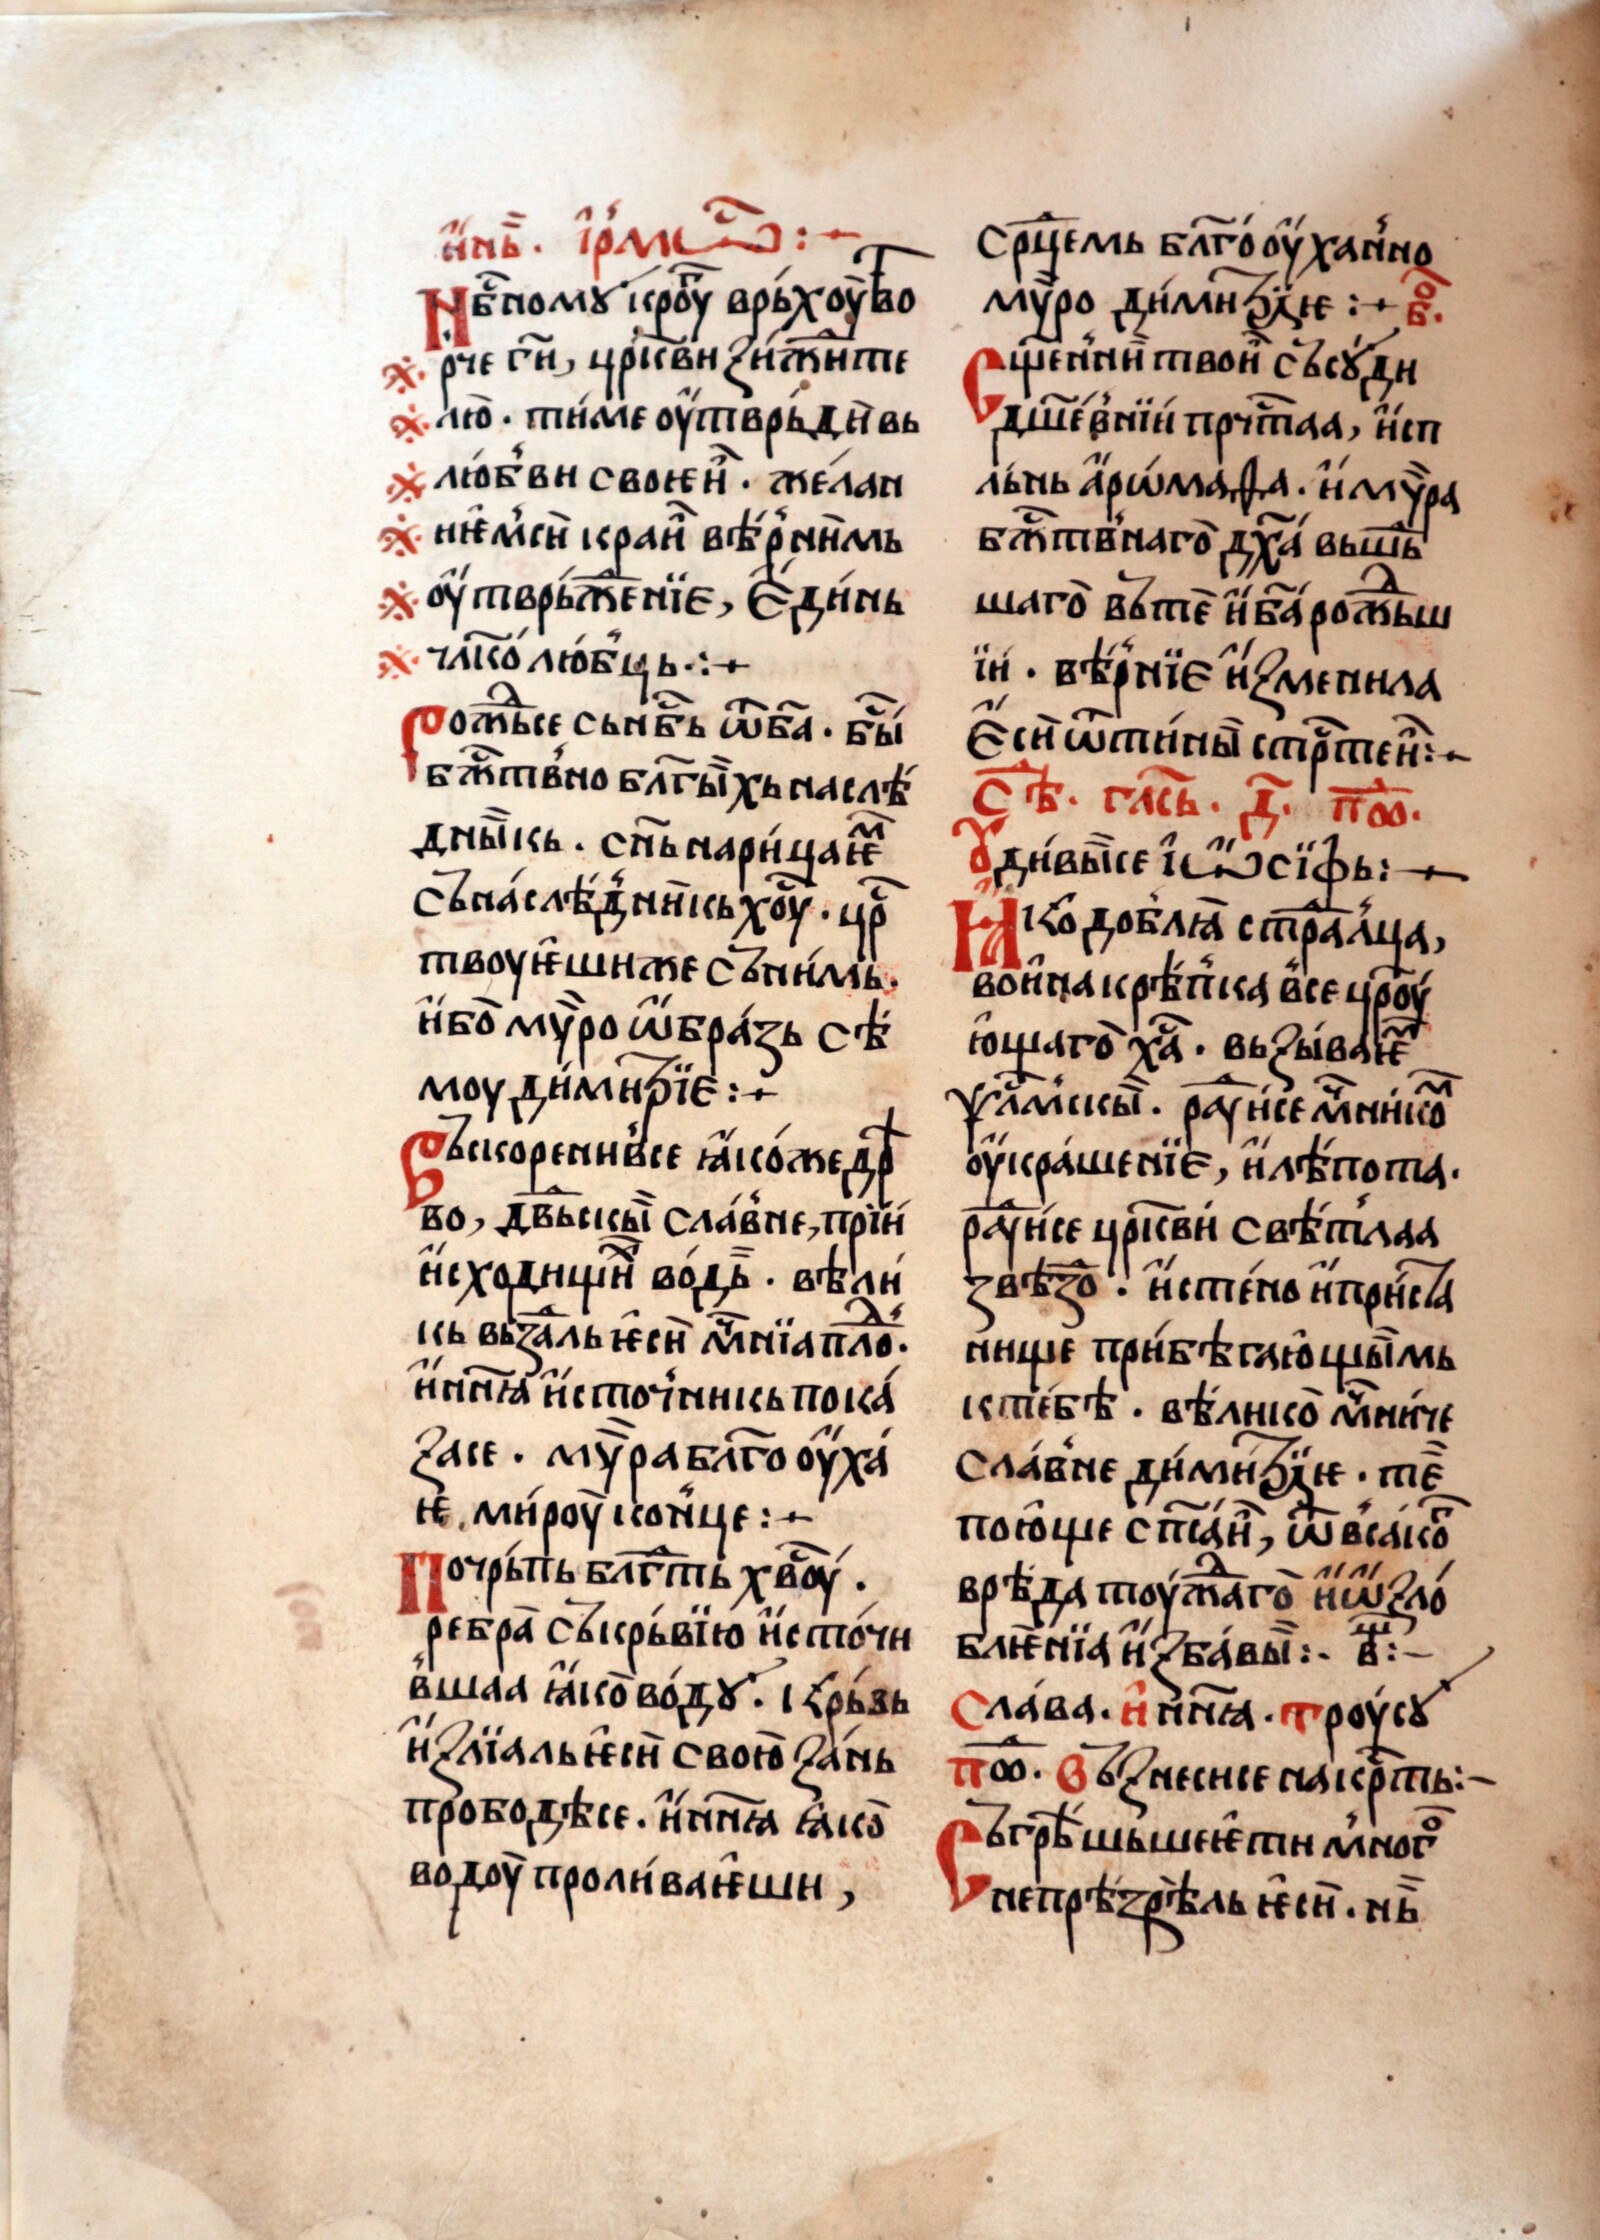 и҆нь. і҆рмо҆с :–
Нбⷭ҇номꙋ крꙋ́гꙋ врь́хоу̀тво
рче гⷭ҇и, црк҃ви зижди́те
лю̀. ти́ме оу҆тврь́ди вь
лю́бви своѥи҆̀. жела́н
нїемси краи҆̀ вѣ́рним̀ь
оу҆тврьж҃енїе, є҆ди́нь
чл҃ко́лю́бць.:+
Рождьсе сьнбⷭ҇ь ѿ б҃а. бы́ⷭ
бжⷭ҇твно бл҃гы̀хь наслѣ́
дны̀кь. сн҃ь нари́цаѥⷨ
Сьна́слѣ́дникь хоⷭ҇у. црⷭ҇
твоуѥшиже съни́мь.
и҆бо̀ мѵ̀ро ѡ҆бра́зь сѣ
моу ди́ми́трїе :+
Въскоренивсе ꙗ҆ко́же дрѣ
во, дв҃ьскы̀ сла́вне, прїи́
и҆сходищи́х во́дь̀. вѣли́
кь вьзⷣаль ѥсѝ мⷱ҇нїа плѡⷣ.
и҆нн҃ꙗ и҆сто́чникь пока́
засе. мѵ̀ра бл҃гооу҆ха́
нѥ, ми́роу̀ ко́нце :+
Почрь́пь блгⷣть хвоⷭ҇у́.
ребра̀ сь крь́вїю и҆сто́чи
вшаа ꙗ҆ко̀ во́дꙋ. крь́вь
и҆злїаль ѥсѝ свою̀ за́нь
прободѣсе. и҆нн҃ꙗ ꙗ҆ко̀
водоу̀ проли́ваѥши,
Срⷣцемь бл҃гооу҆ха́нно
мѵ̀ро ди́ми́трїѥ :+ бⷪ҇.
Сщ҃е́нни твои҆̀ съсꙋ́ди
дш҃е́внїи прчⷭ҇таа, и҆сп
льнь а҆рѡ́маѳа. и҆ мѵ̀ра
бжⷭ҇твнаго̀ дх҃а́ вьшⷣь
шаго̀ вътѐ и҆ б҃а́ рождьш
їи́. вѣ́рнїе и҆змени́ла
є҆сѝ ѿ ти́ны̀ стрⷭ҇теи҆̀:+
Сѣⷣ. гла́сь. д҃. пⷪⷣ.
Оуди́вы̀се і҆ѡ́сїфь:+
Ꙗко добл̀ꙗ стрⷣалца,
вои҆на крѣ́пка все црⷭ҇оу́
ю҆щаго̀ хⷭ҇а. вьзы́ваѥⷨ
ѱл҃мскы̀. рⷣауи́се мⷱ҇никоⷨ
оу҆кра́шенїе, и҆ лѣ́пота.
рⷣауи́се црк҃ви́ свѣ́тлаа
звѣзⷣо. и҆ сте́но и҆ при́ста
нище при́бѣгаю҆щы̀мь
к те́бѣ. вѣ́лико̀ мⷱ҇ни́че
сла́вне ди́ми́трїѥ. тѐ
пою҆ще спⷭ҇аи҆̀, ѿ всакоⷢ
врѣ́да тоу́ждаго̀ и҆ ѡ҆зло́
блѥнїа и҆збавы̀:. в҃:–
Слава. и҆ нн҃ꙗ. троу́сꙋ
поⷣ. Въ́знесисе на крⷭ҇ть:–
Съгрѣ́шьше ѥти мно́гоⷭ
не прѣзрѣль ѥсѝ. нь̀